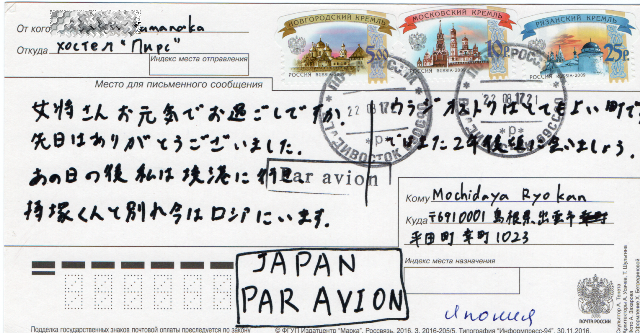 От кого
Откуда Хостел "Пирс"
Индекс места отправления
Место для письменного сообщения
НОВГОРОДСКИЙ КРЕМЛЬ
РОССИЯ
МОСКОВСКИЙ КРЕМЛЬ
РОССИЯ
РЯЗАНСКИЙ КРЕМЛЬ
25р
РОССИЯ
22 08 17
ВЛАДИВОСТОК
女将さんお元気でお過ごしですか。
先日はありがとうございました。
あの日の後私は境港に行き、
持塚くんと別れ今はロシアにいます。
ウラジオストクはとてもよい町です
ではまた2年後後に会いましょう。
Par avion
Кому Mochidaya Ryokan
Куда 〒6910001 島根県出雲市
平田町 幸町1023
Индекс места назначения
JAPAN
PAR AVION
Япония
ПОЧТА РОССИИ
Подделка государственных знаков почтовой оплаты преследуется по закону
© ФГУП Издатцентр "Марка", Россвязь, 2016, З. 2016-205/5. Типография "Информоурок-94". 30.11.2016.